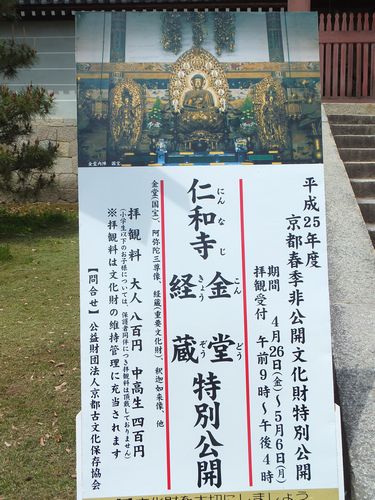 金堂内陣 国宝
平成25年度
京都春季非公開文化財特別公開
期間 4月26日(金)~5月6日(月)
拝観受付 午前9時~午後4時
仁和寺 金堂 経蔵 特別公開
にんなじ
こんどう
きょうぞう
金堂(国宝)、阿弥陀三尊像、経蔵(重要文化財)、釈迦如来像、他
拝観料 大人 八百円 中高生 四百円
(小学生以下のお子様については、保護者同伴につき拝観料は頂戴しておりません)
※拝観料は文化財の維持管理に充当されます
【問合せ】公益財団法人京都古文化保存協会
文化財を大切にしましょう